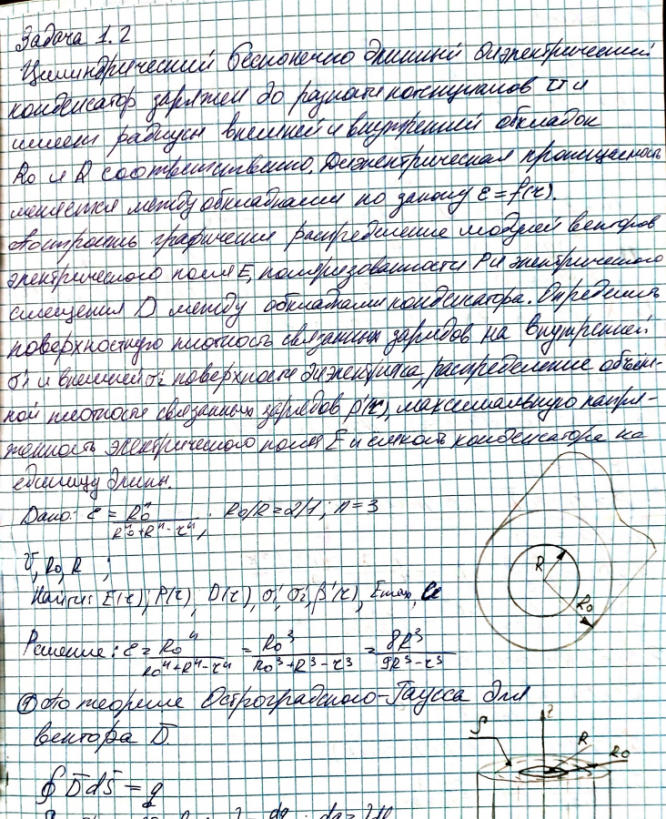 Задача 1.2
Цилиндрический бесконечно длинный диэлектрический
конденсатор заряжен до разности потенциалов U и
имеет радиусы внешней и внутренней обкладок
R₀ и R соответственно. Диэлектрическая проницаемость
меняется между обкладками по закону ε=f(r).
Построить графически распределение модулей векторов
электрического поля E, поляризованности P и электрического
смещения D между обкладками конденсатора. Определить
поверхностную плотность связанных зарядов на внутренней
σ₁' и внешней σ₂' поверхностях диэлектрика, распределение объём-
ной плотности связанных зарядов ρ'(r), максимальную напря-
женность электрического поля E и ёмкость конденсатора на
единицу длины.
Дано: ε = R₀ⁿ / (R₀ⁿ+Rⁿ-rⁿ); R₀/R=2/1; n=3
U, R₀, R ;
Найти: E(r), P(r), D(r), σ₁', σ₂', ρ'(r), Emax,
R
R₀
Решение: ε = R₀ⁿ / (R₀ⁿ+Rⁿ-rⁿ) = R₀³ / (R₀³+R³-r³) = 8R³ / (9R³-r³)
① По теореме Остроградского-Гаусса для
вектора D̄
S
R
R₀
∮D̄dS̄ = q